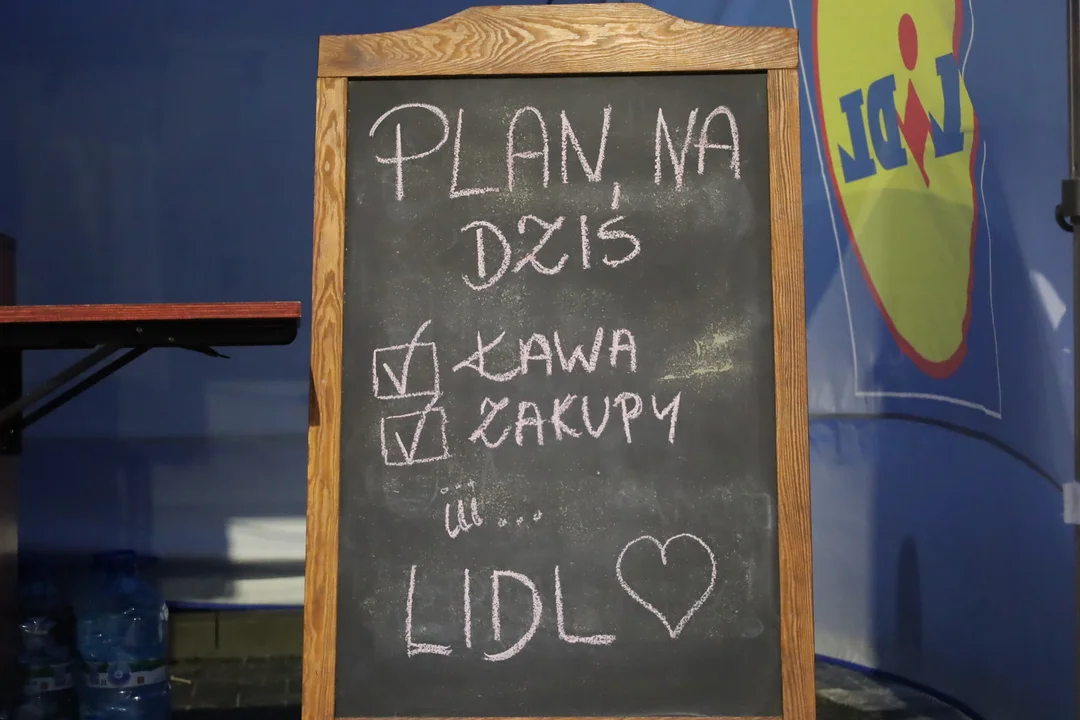 PLAN NA
DZIŚ
KAWA
ZAKUPY
iii...
LIDL
LIDL